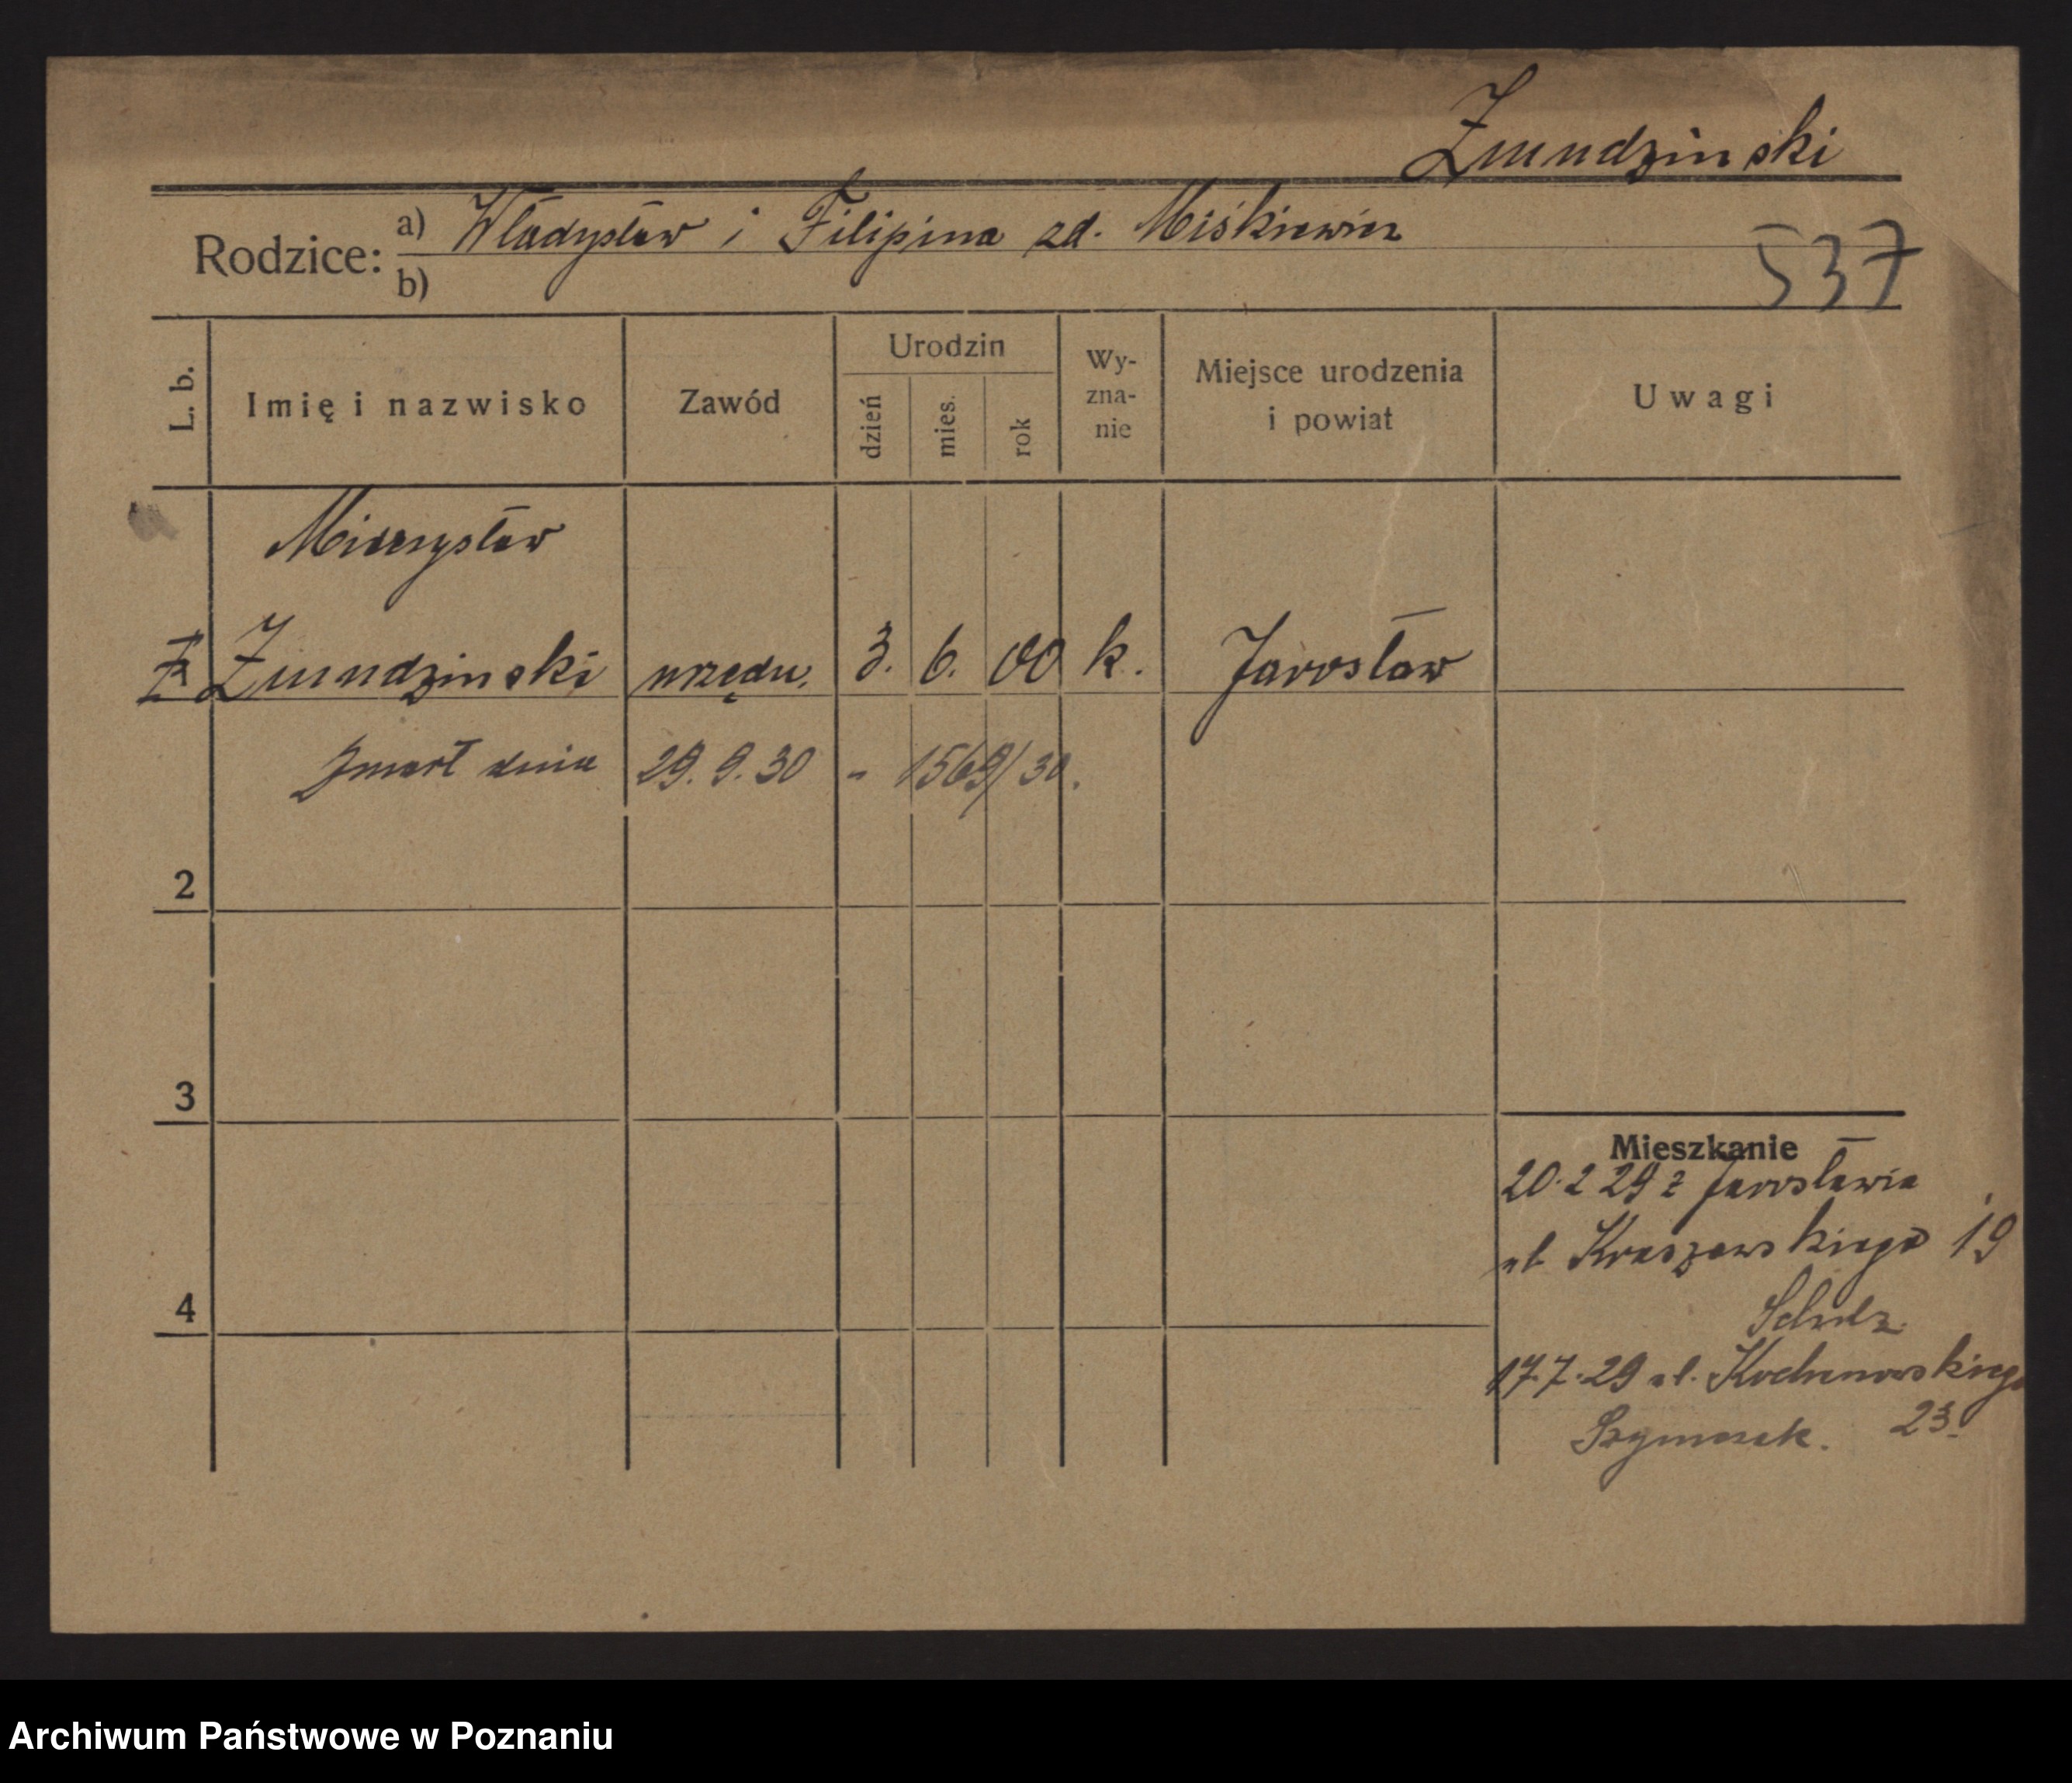 Żmudzinski
Rodzice: a) Władysław i Filipina zd. Miśkiewicz
537
b)
L. b. Imię i nazwisko Zawód Urodzin dzień mies. rok Wy-zna-nie Miejsce urodzenia i powiat Uwagi
Mieczysław
Żmudzinski urzędn. 3. 6. 00 k. Jarosław
zmarł dnia 29. 9. 30 - 1569/30.
2
3
Mieszkanie
20.2 29 z Jarosławia
ul. Kraszewskiego 19
Schulz
4
17.7.29 ul. Kochanowskiego
23.
Szymczak.
Archiwum Państwowe w Poznaniu